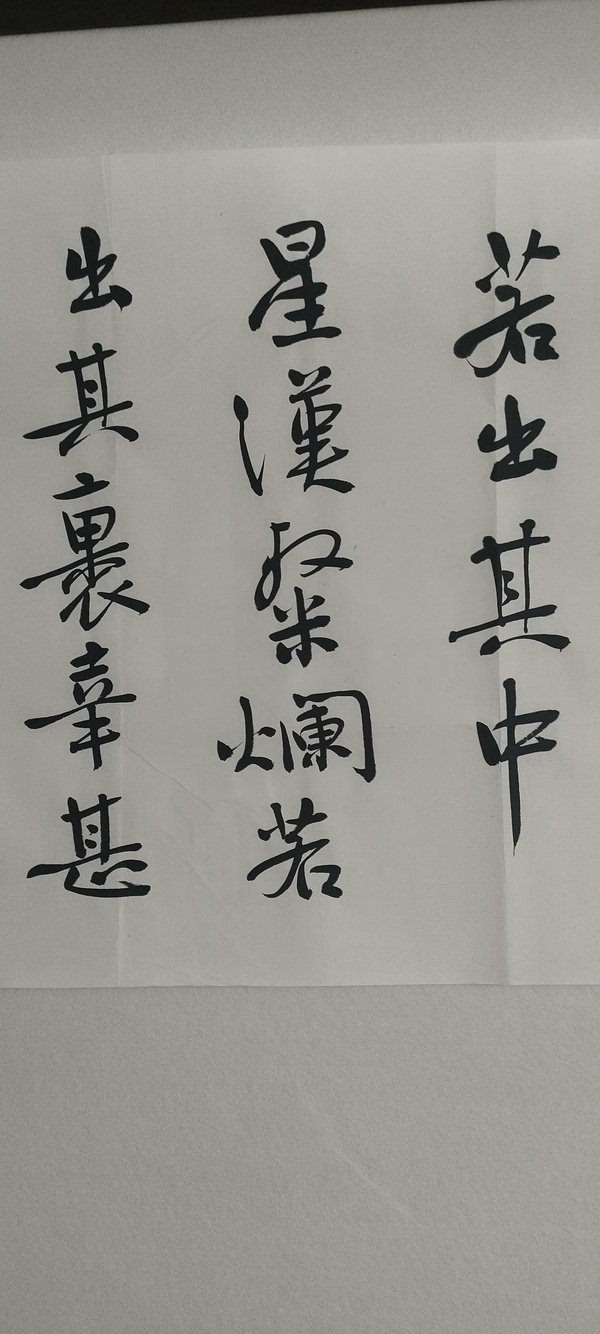 若出其中
星漢粲爛若
出其裹幸甚